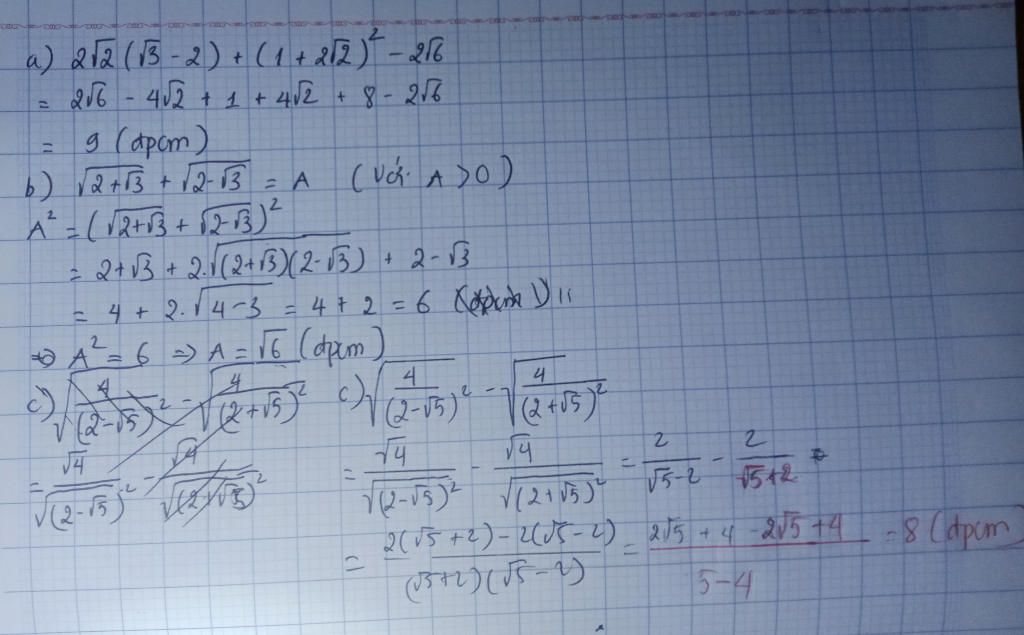 a) 2√2(√3 - 2) + (1 + 2√2)² - 2√6
= 2√6 - 4√2 + 1 + 4√2 + 8 - 2√6
= 9 (đpcm)
b) √(2+√3) + √(2-√3) = A (Với A > 0)
A² = (√(2+√3) + √(2-√3))²
= 2+√3 + 2.√((2+√3)(2-√3)) + 2-√3
= 4 + 2.√(4-3) = 4 + 2 = 6
=> A² = 6 => A = √6 (đpcm)
c) √(4/(2-√5)²) - √(4/(2+√5)²)
= √4/√(2-√5)² - √4/√(2+√5)²
c) √(4/(2-√5)²) - √(4/(2+√5)²)
= √4/√(2-√5)² - √4/√(2+√5)² = 2/(√5-2) - 2/(√5+2)
= (2(√5+2) - 2(√5-2))/((√5+2)(√5-2)) = (2√5 + 4 - 2√5 + 4)/(5-4) = 8 (đpcm)